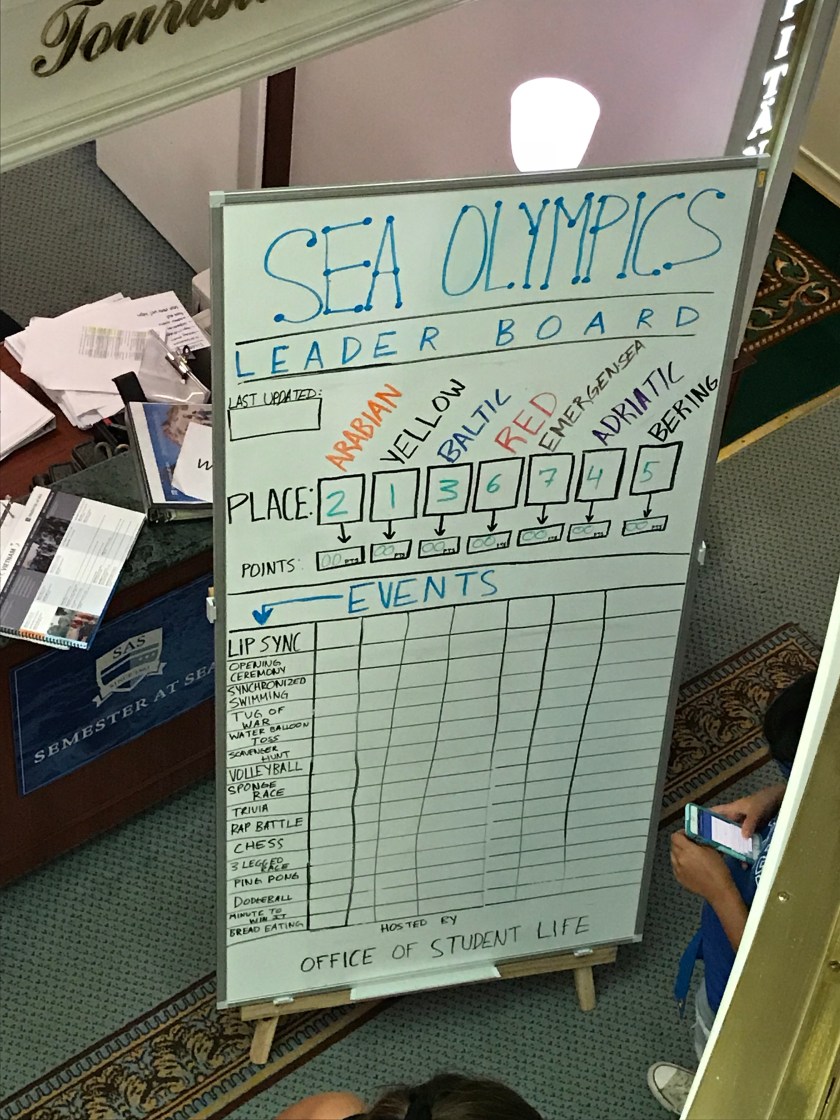 Touris
PITA
SEA OLYMPICS
LEADER BOARD
LAST UPDATED:
ARABIAN YELLOW BALTIC RED EMERGENSEA ADRIATIC BERING
PLACE: 2 1 3 6 7 4 5
POINTS: 00 PTS 00 PTS 00 PTS 00 PTS 00 PTS 00 PTS 00 PTS
EVENTS
LIP SYNC
OPENING
CEREMONY
SYNCHRONIZED
SWIMMING
TUG OF
WAR
WATER BALLOON
TOSS
SCAVENGER
HUNT
VOLLEYBALL
SPONGE
RACE
TRIVIA
RAP BATTLE
CHESS
3 LEGGED
RACE
PING PONG
DODGEBALL
MINUTE TO
WIN IT
BREAD EATING
HOSTED BY
OFFICE OF STUDENT LIFE
VIETNAM
SAS
SEMESTER AT SEA